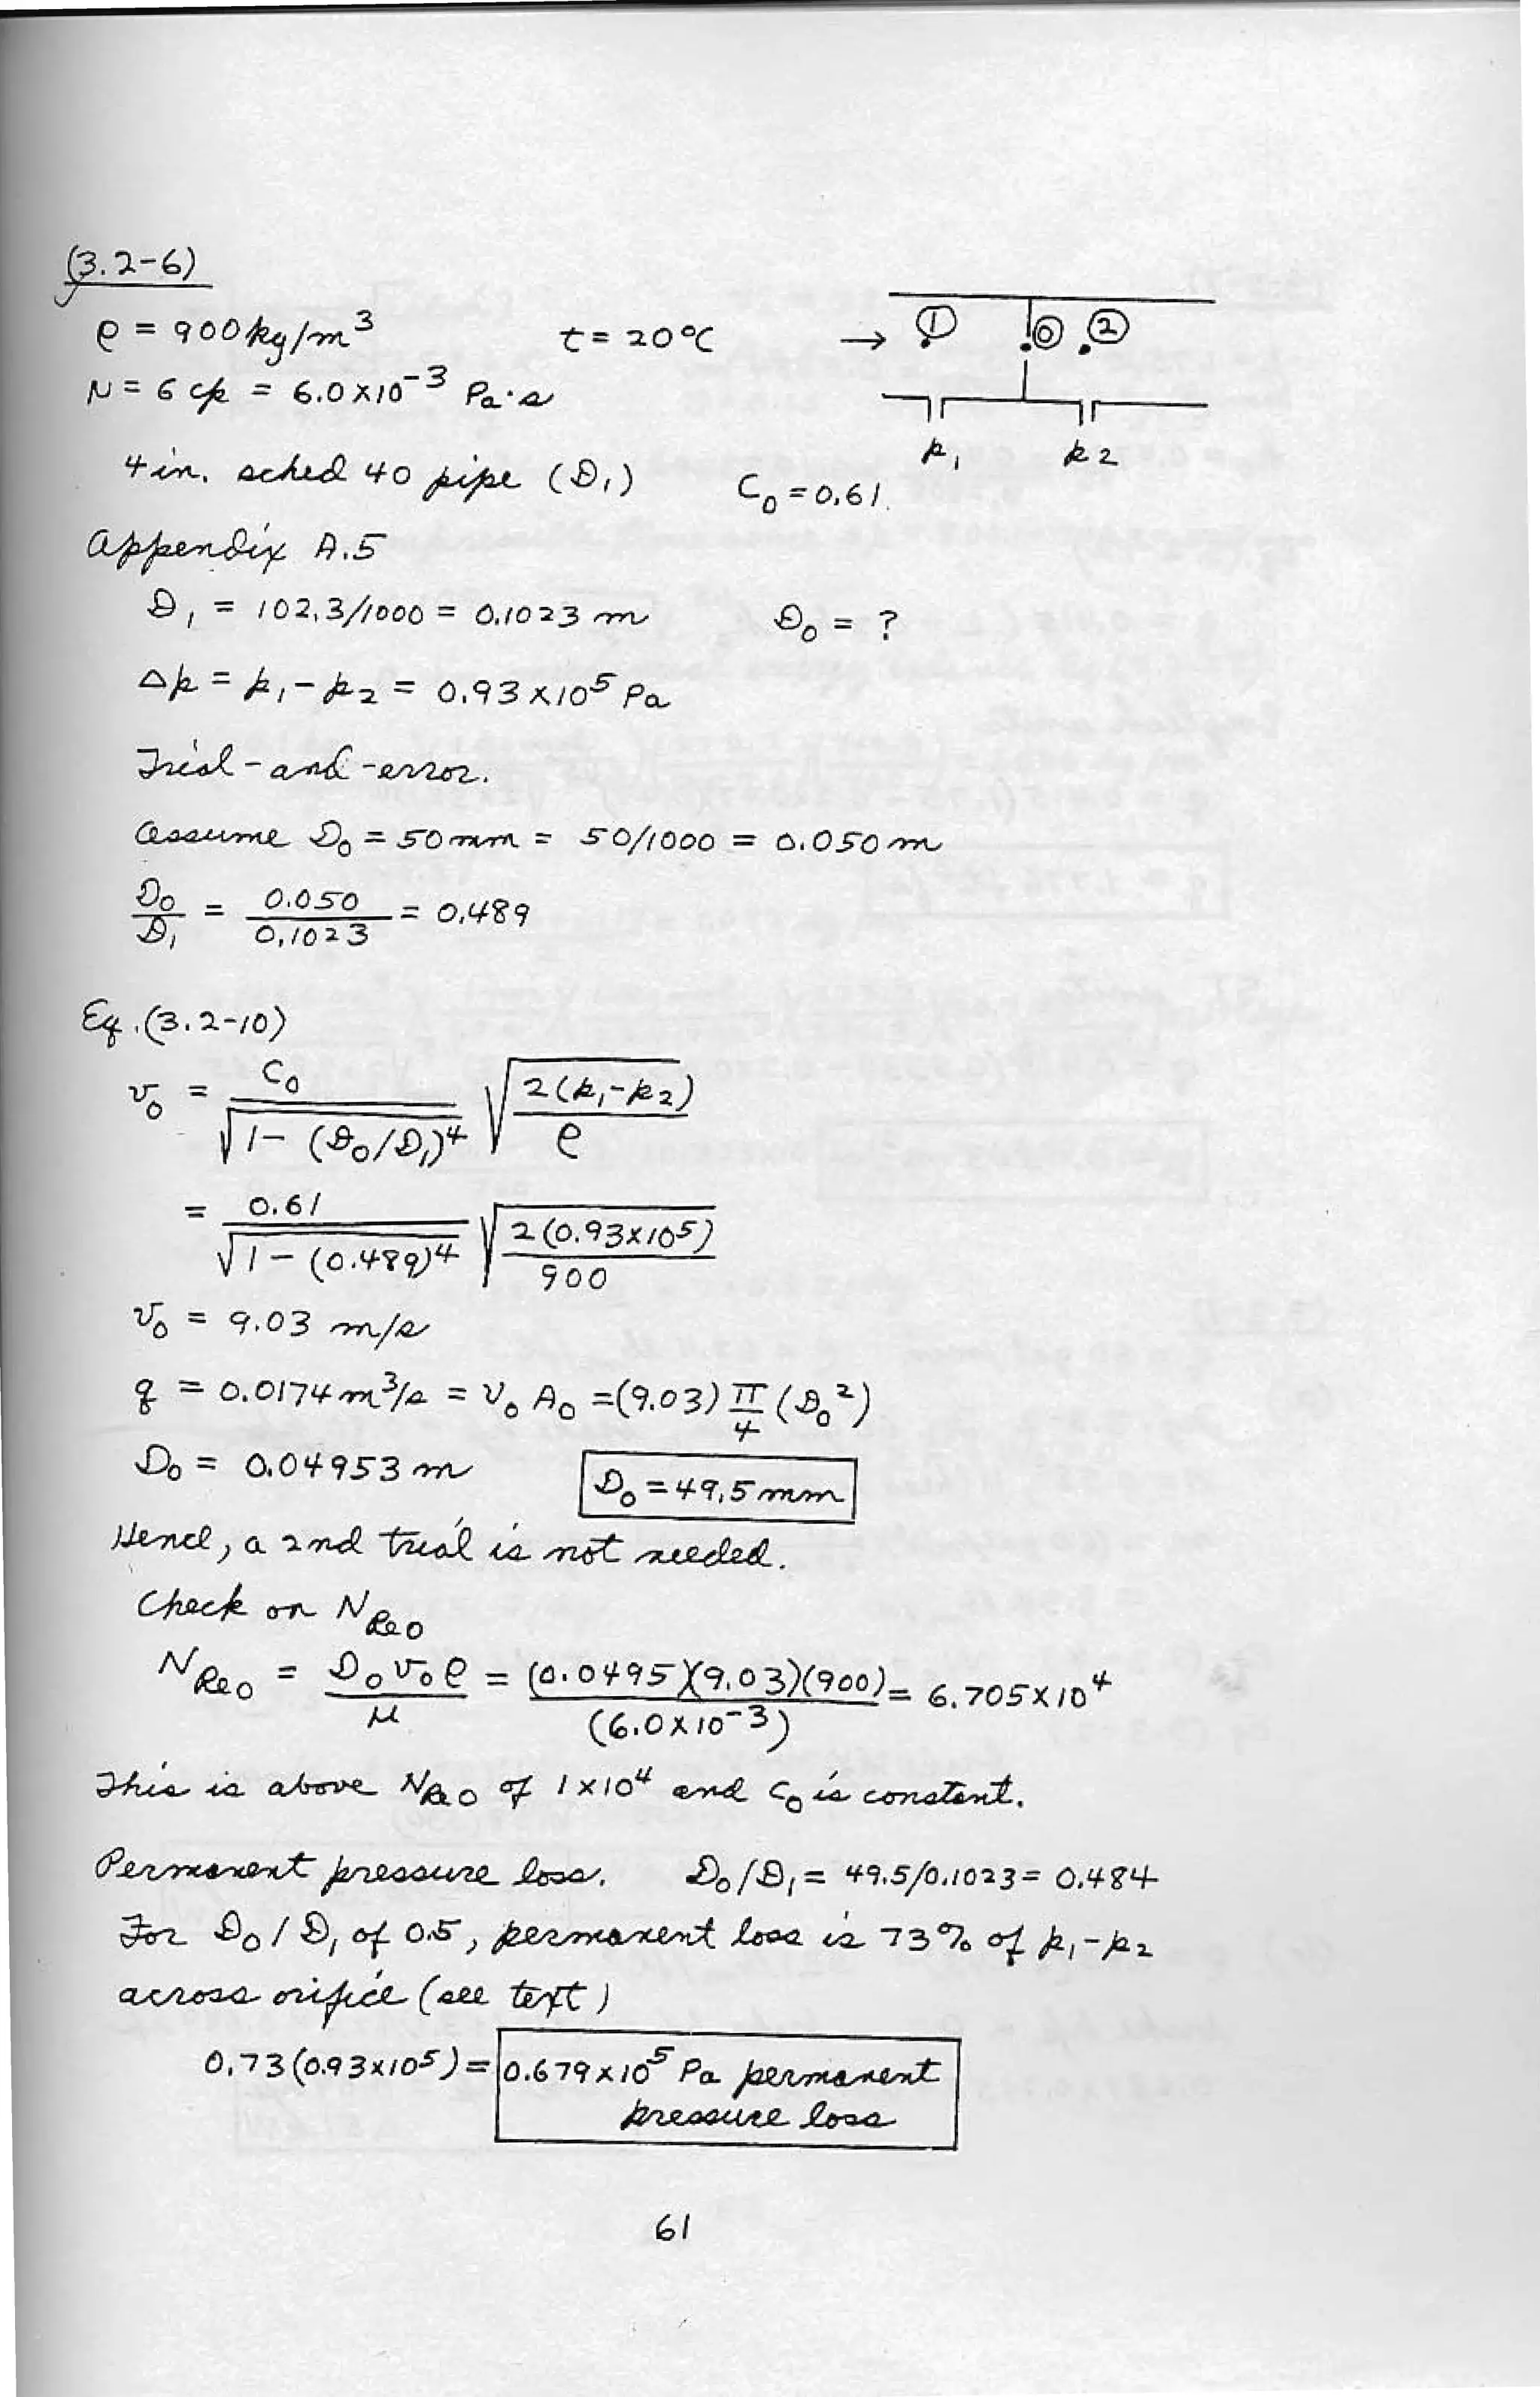 (3.2-6)
ρ = 900 kg/m³ t = 20 °C → ① ⓪ ②
μ = 6 cp = 6.0 x 10⁻³ Pa·s
p₁ p₂
4 in. sched 40 pipe (D₁) C₀ = 0.61
Appendix A.5
D₁ = 102.3/1000 = 0.1023 m D₀ = ?
Δp = p₁ - p₂ = 0.93 x 10⁵ Pa
Trial-and-error.
Assume D₀ = 50 mm = 50/1000 = 0.050 m
D₀/D₁ = 0.050/0.1023 = 0.489
Eq. (3.2-10)
v₀ = C₀/√(1 - (D₀/D₁)⁴) √(2(p₁-p₂)/ρ)
= 0.61/√(1 - (0.489)⁴) √(2(0.93x10⁵)/900)
v₀ = 9.03 m/s
q = 0.0174 m³/s = v₀ A₀ = (9.03) π/4 (D₀²)
D₀ = 0.04953 m D₀ = 49.5 mm
Hence, a 2nd trial is not needed.
Check on N_Re0
N_Re0 = D₀v₀ρ/μ = (0.0495)(9.03)(900)/(6.0x10⁻³) = 6.705x10⁴
This is above N_Re0 of 1x10⁴ and C₀ is constant.
Permanent pressure loss. D₀/D₁ = 49.5/0.1023 = 0.484
For D₀/D₁ of 0.5, permanent loss is 73% of p₁-p₂
across orifice (see text)
0.73(0.93x10⁵) = 0.679x10⁵ Pa permanent
pressure loss
61